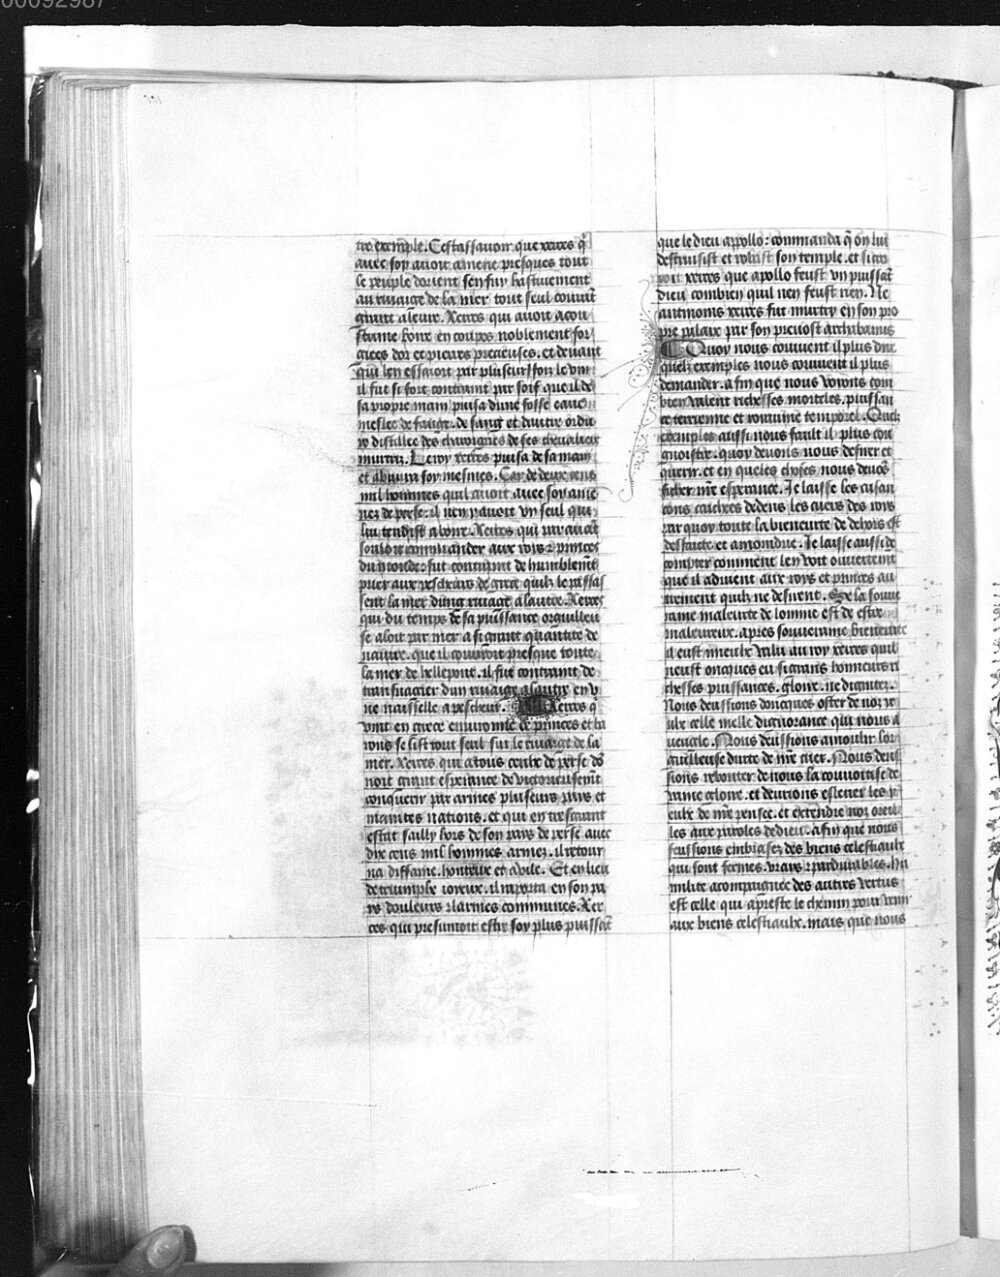 00092987
tre exemple. Cestassauoir que xerces q̄
auec soy auoit amene presques tout
le peuple dorient senfuy hastiuement
au riuaige de la mer tout seul courāt
grant aleure. Xerces qui auoit acou
stume boire en coupes noblement for
giees dor et pierres precieuses. et deuant
qui len essaioit par plusieurs foiz le vin
il fut si fort contraint par soif que il de
sa propre main puisa dune fosse eaue
meslee de fange. de sang et dautre ordu
re distillee des charoignes de ses cheualiers
murtriz. Le roy xerces puisa de sa main
et abuura soy mesmes. Car de deux cens
mil hommes quil auoit auec soy ame
nez de perse. il nen y auoit vn seul qui
lui tendist a boire. Xerces qui par auāt
souloit commander aux roys et princes
du monde. fut contraint de humblemēt
prier aux pescheurs de grece quilz le passas
sent la mer dung riuage a lautre. Xerces
qui du temps de sa puissance orguilleu
se aloit par mer a si grant quantite de
nauire. que il couuroit presque toute
la mer de hellepont. il fut contraint de
transnagier dun riuaige a lautre en v
ne nasselle a pescheur. Xerces q̄
vint en grece enuironne de princes et ba
rons se sist tout seul sur le riuaige de la
mer. Xerces qui a tous ceulx de perse dō
noit grant esperance de victorieusemēt
conquerir par armes plusieurs pays et
maintes nations. et qui en tresgrant
estat sailly hors de son pays de perse auec
dix cens mil hommes armez. il retour
na diffame. honteux et auile. Et en lieu
de triumphe ioyeux. il rapporta en son pa
ys douleurs et larmes communes. Xer
ces qui presumoit estre soy plus puissāt
que le dieu apollo: commanda q̄ on lui
destruisist et robast son temple. et si cro
oit xerces que apollo feust vn puissāt
dieu combien quil nen feust rien. Ne
antmoins xerces fut murtry en son pro
pre palaix par son preuost archabanus
Quoy nous conuient il plus dire
quelz exemples nous conuient il plus
demander. afin que nous voions com
bien valent richesses mortelles. puissan
ce terrienne et royaume temporel. Quelz
exemples aussi nous fault il plus con
gnoistre. quoy deuons nous desirer et
querir. et en queles choses nous deuōs
ficher nrē esperance. Je laisse les cusan
cons cachees dedens les cuers des roys
par quoy toute la bieneurte de dehors est
deffaicte et amoindrie. Je laisse aussi de
compter comment len voit ouuertemt
que il aduient aux roys et princes au
trement quilz ne desirent. Se la souue
raine maleurte de lomme est de estre
maleureux. apres souueraine bieneurte
il eust mieulx valu au roy xerces quil
neust oncques eu si grans honneurs ri
chesses puissances. gloire. ne dignitez.
Nous deussions doncques oster de noz ye
ulx celle nielle dignorance qui nous a
ueugle. Nous deussions amolir lor
guilleuse durte de nrē cuer. Nous deus
sions rebouter de nous la couuoitise de
vaine gloire. et deurions esleuer les ye
eulx de nrē pensee. et extendre noz oreil
les aux paroles de dieu. afin que nous
feussions embrasez des biens celestiaulx
qui sont fermes. vrays et pardurables. Hu
milite acompaignee des autres vertus
est celle qui apreste le chemin pour venir
aux biens celestiaulx. mais que nous